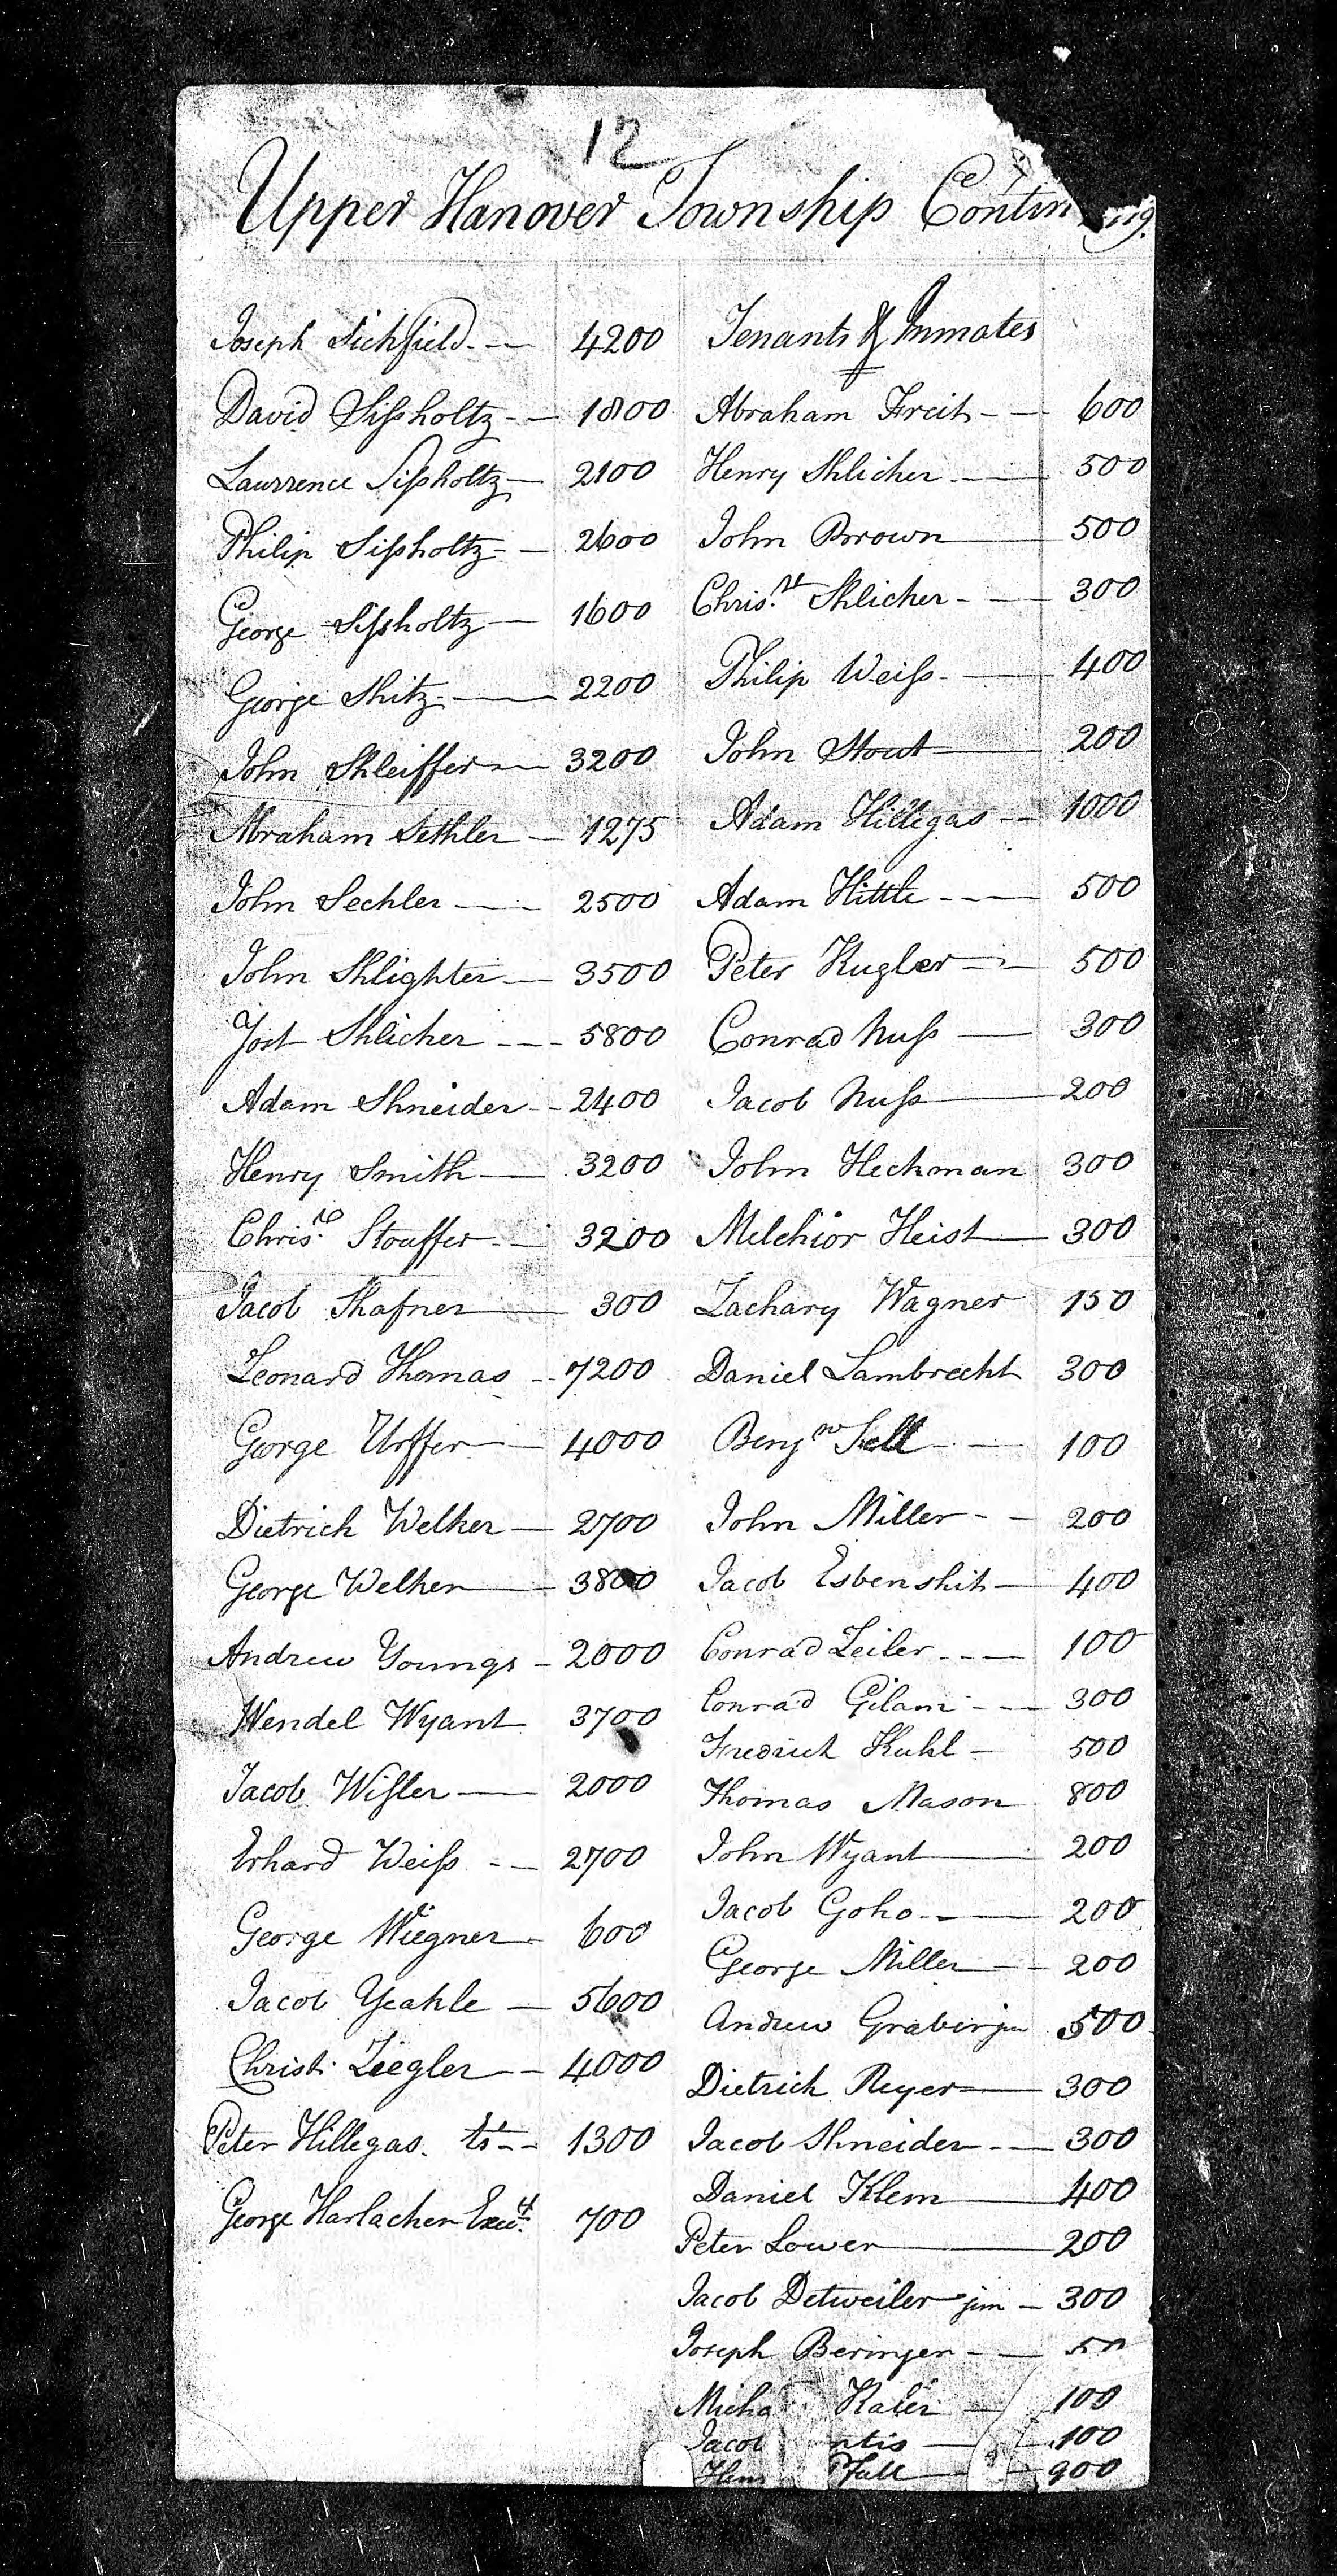 12
Upper Hanover Township Contin ing.
Joseph Sichfield 4200
David Sissholtz 1800
Lawrence Sissholtz 2100
Philip Sissholtz 2600
George Sissholtz 1600
George Shitz 2200
John Shleiffer 3200
Abraham Sethler 1275
John Sechler 2500
John Shlighter 3500
Jost Shlicher 5800
Adam Shneider 2400
Henry Smith 3200
Chris.n Stouffer 3200
Jacob Shafner 300
Leonard Thomas 7200
George Urffer 4000
Dietrich Welker 2700
George Welker 3800
Andrew Youngs 2000
Wendel Wyant 3700
Jacob Wissler 2000
Erhard Weiss 2700
George Wiegner 600
Jacob Yeakle 5600
Christ. Ziegler 4000
Peter Hillegas 1300
George Harlacher 700
Tenants & Inmates
Abraham Freit 600
Henry Shlicher 500
John Brown 500
Chris.n Shlicher 300
Philip Weiss 400
John Stout 200
Adam Hillegas 1000
Adam Hittle 500
Peter Kugler 500
Conrad Nuss 300
Jacob Nuss 200
John Heckman 300
Melchior Heist 300
Zachary Wagner 150
Daniel Lambrecht 300
Benjn Sell 100
John Miller 200
Jacob Esbenshit 400
Conrad Zeiler 100
Conrad Gilam 300
Fredrick Kuhl 500
Thomas Mason 800
John Wyant 200
Jacob Goho 200
George Miller 200
Andrew Graber jun 500
Dietrich Reyer 300
Jacob Shneider 300
Daniel Klem 400
Peter Lower 200
Jacob Detweiler jun 300
Joseph Beringer
Micha 100
Jacob ntis 100
900